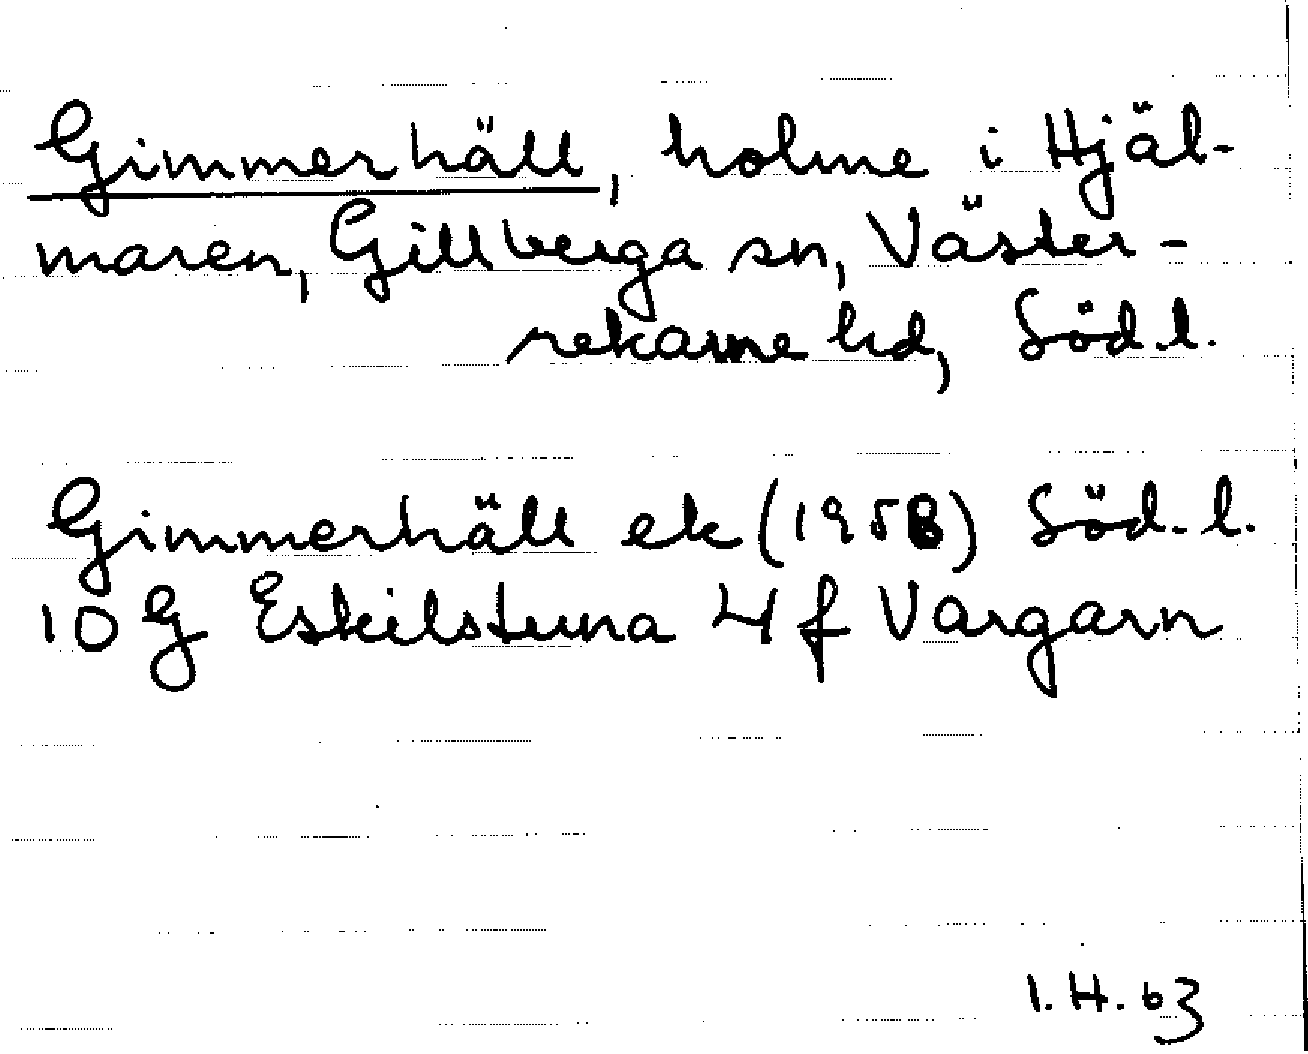 Gimmerhäll, holme i Hjäl-
maren, Gillberga sn, Väster-
rekarne hd, Söd.l.
Gimmerhäll ek (1958) Söd.l.
10 G Eskilstuna 4 f Vargarn
I.H.63